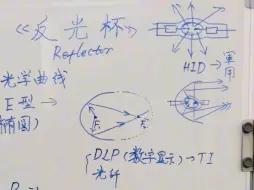 《反光杯》
Reflector
HID → 軍用
光学曲线
E型 →
椭圆)
F₁
{DLP(数字显示)→TI
光纤